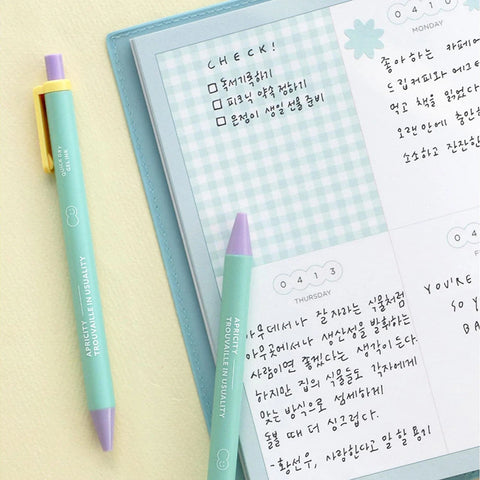 CHECK!
□ 독서기록하기
□ 피크닉 약속 정하기
□ 은정이 생일 선물 준비
0410
MONDAY
좋아 하는 카페에
드립커피와
먹고 책을 읽었다
오랜만에
소소하고 잔잔한
QUICK DRY
GEL INK
APRICITY
TROUVAILLE IN USUALITY
0413
THURSDAY
아무데서나 잘 자라는 식물처럼
아무곳에서나 생산성을 발휘하는
사람이면 좋겠다는 생각이 든다.
하지만 집의 식물들도 각자에게
맞는 방식으로 섬세하게
돌볼 때 더 싱그럽다.
-황선우, 사랑한다고 말할 용기
APRICITY
TROUVAILLE IN USUALITY
04
YOU'RE
SO